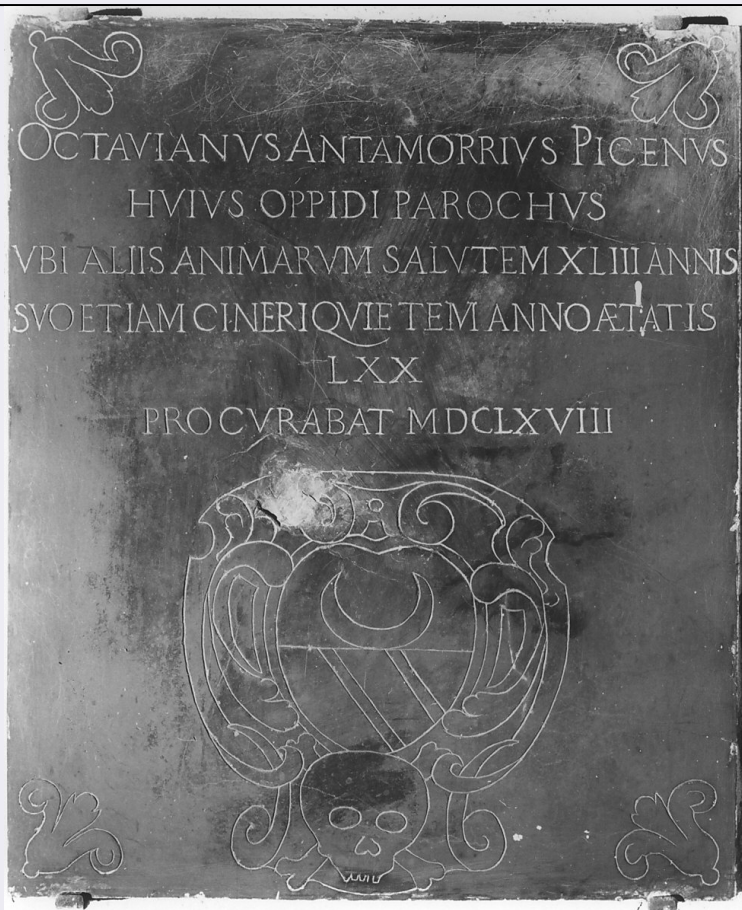 OCTAVIANVS ANTAMORRIVS PICENVS
HVIVS OPPIDI PAROCHVS
VBI ALIIS ANIMARVM SALVTEM XLIII ANNIS
SVO ETIAM CINERI QVIETEM ANNO ÆTATIS
LXX
PROCVRABAT MDCLXVIII